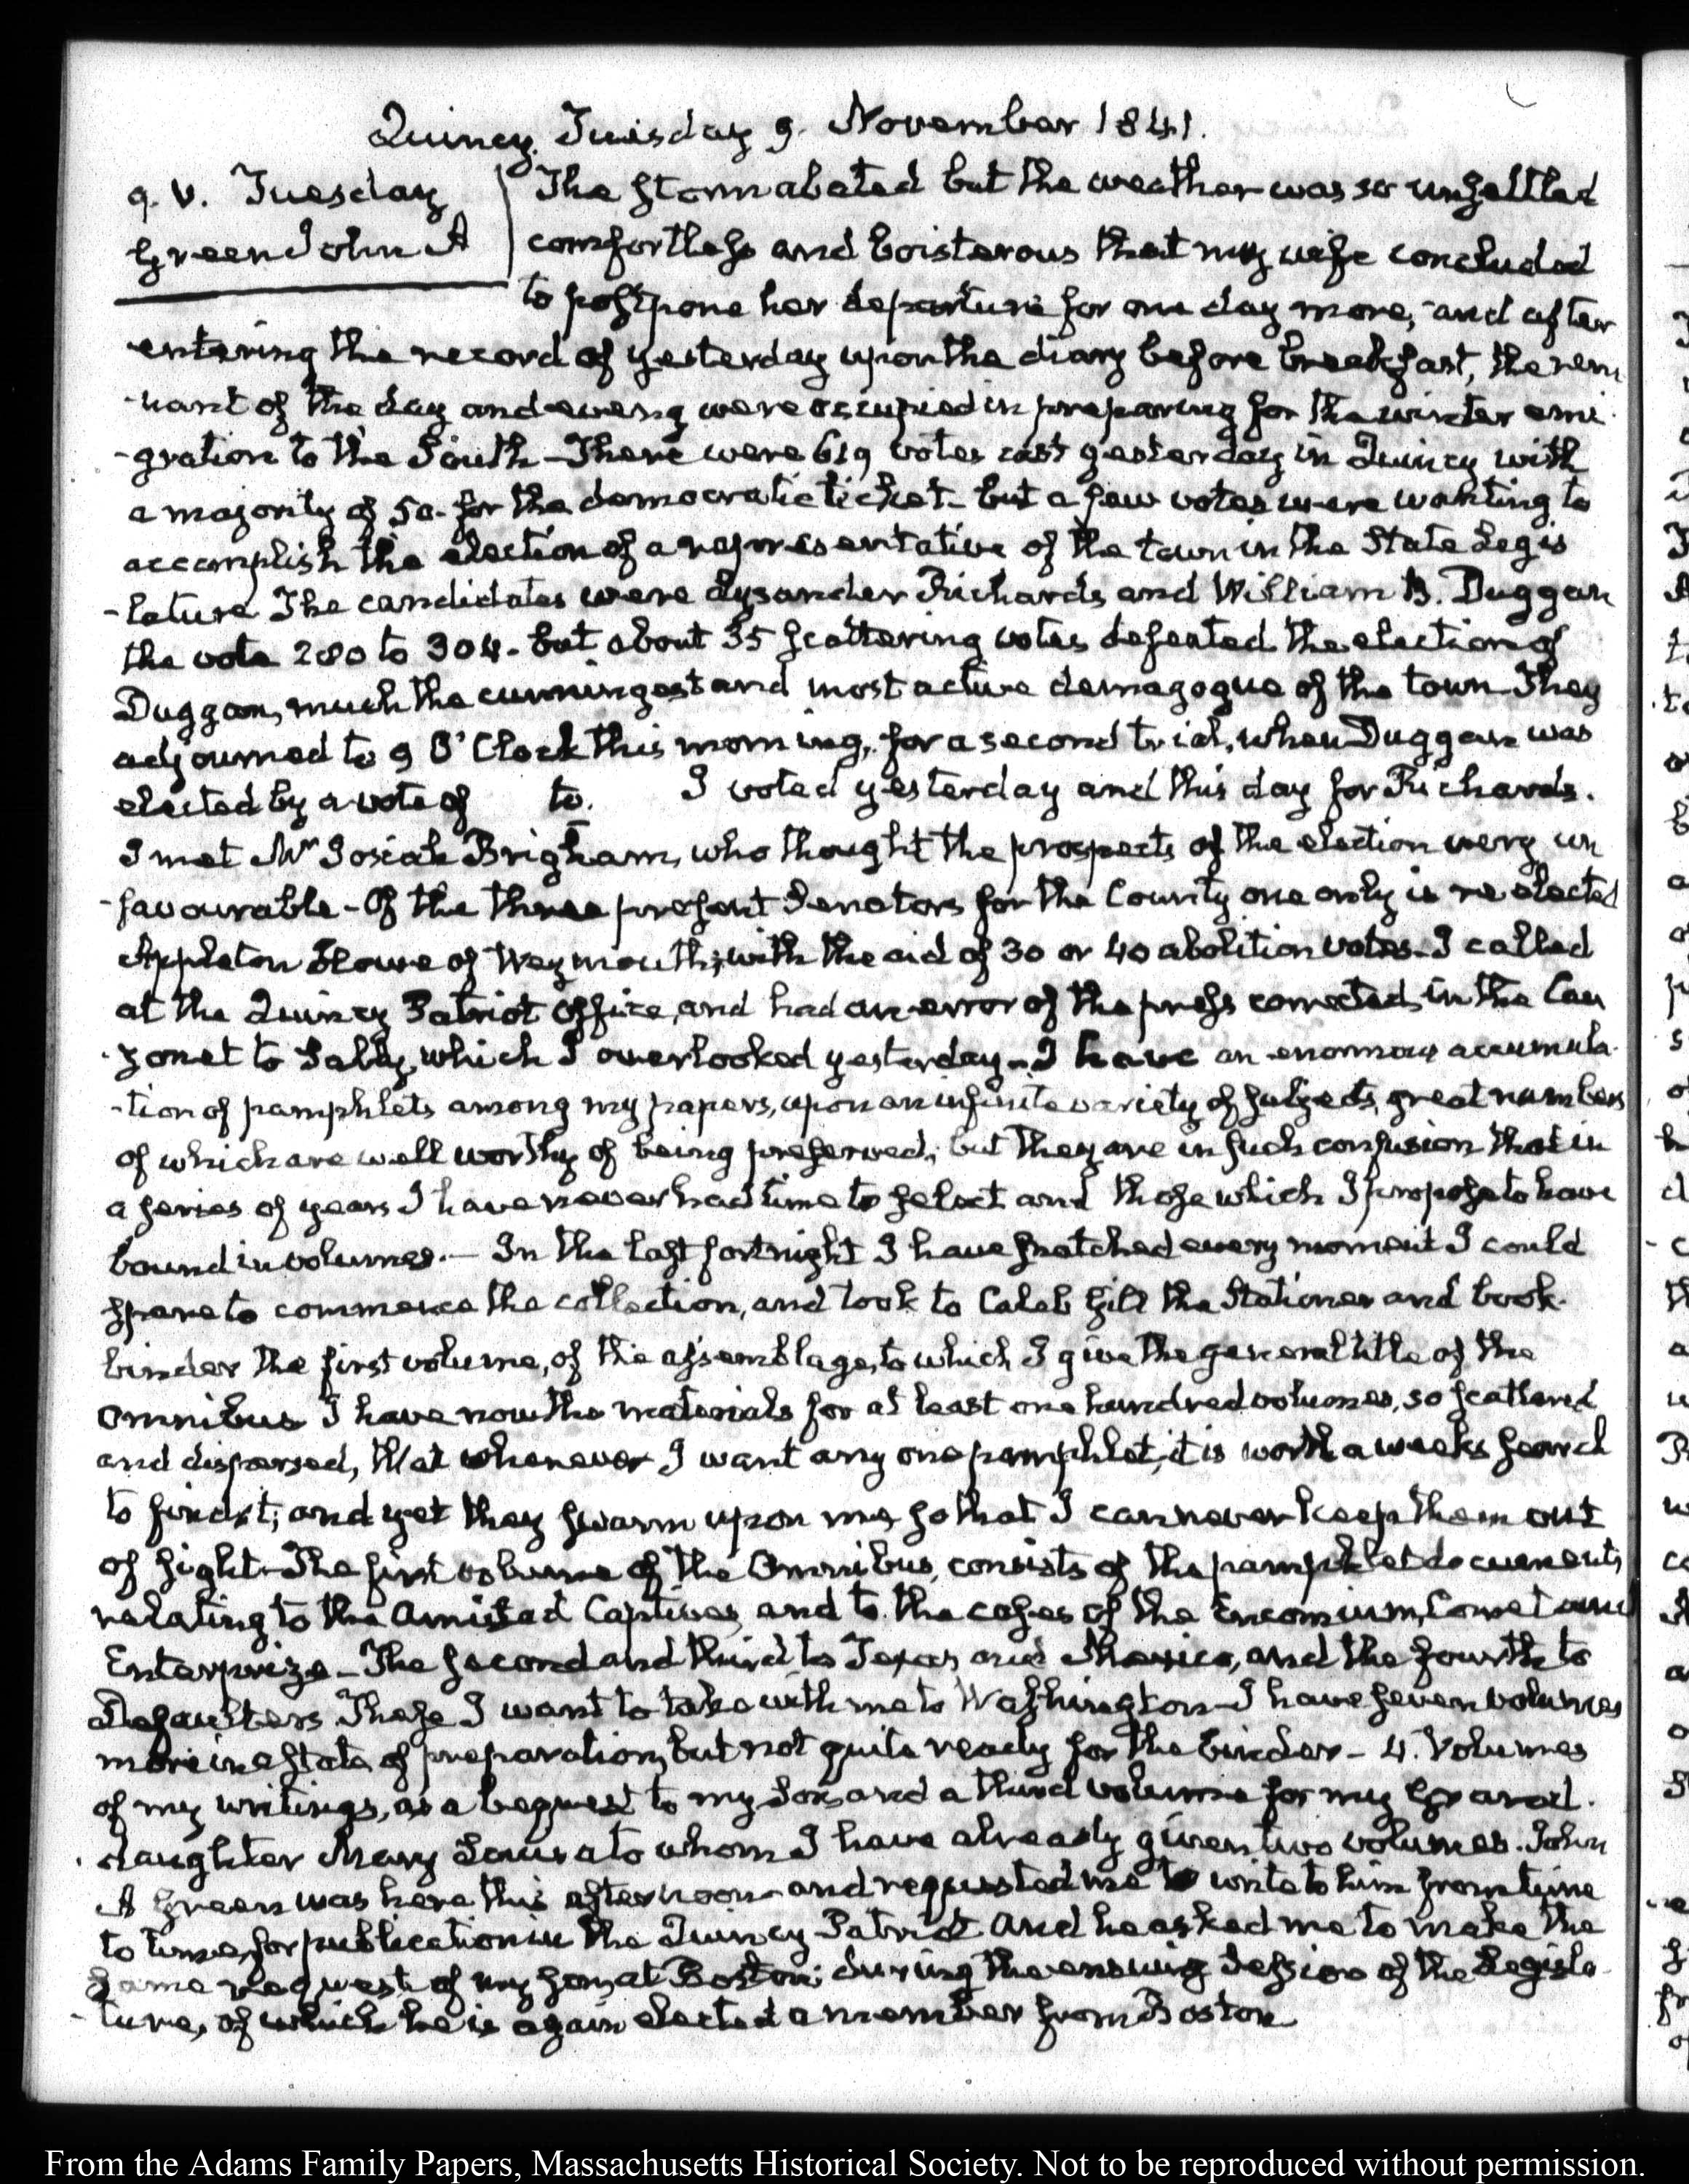 Quincy. Tuesday 9. November 1841.
9. V. Tuesday
Green John A
The storm abated but the weather was so unsettled
comfortless and boisterous that my wife concluded
to postpone her departure for one day more, and after
entering the record of yesterday upon the diary before breakfast, the rem
-nant of the day and evening were occupied in preparing for the winter emi
-gration to the South – There were 619 votes cast yesterday in Quincy with
a majority of 50. for the democratic ticket – but a few votes were wanting to
accomplish the election of a representative of the town in the State Legis
-lature The candidates were Lysander Richards and William B. Duggan
the vote 280 to 304 – but about 35 scattering votes defeated the election of
Duggan, much the cunningest and most active demagogue of the town They
adjourned to 9 O'Clock this morning, for a second trial, when Duggan was
elected by a vote of to. I voted yesterday and this day for Richards.
I met Mr Josiah Brigham, who thought the prospects of the election very un
-favourable – Of the three present Senators for the County one only is re elected
Appleton Howe of Weymouth; with the aid of 30 or 40 abolition votes – I called
at the Quincy Patriot Office, and had an error of the press corrected, in the Can
-zonet to Sally, which I overlooked yesterday – I have an enormous accumula-
-tion of pamphlets among my papers, upon an infinite variety of subjects, great numbers
of which are well worthy of being preserved; but they are in such confusion that in
a series of years I have never had time to select and those which I propose to have
bound in volumes. – In the last fortnight I have snatched every moment I could
spare to commence the collection, and took to Caleb Gill the Stationer and book-
binder the first volume, of the assemblage, to which I give the general title of the
Omnibus I have now the materials for at least one hundred volumes, so scattered
and dispersed, that whenever I want any one pamphlet, it is worth a weeks search
to find it; and yet they swarm upon me, so that I can never keep them out
of sight – The first volume of the Omnibus, consists of the pamphlet documents,
relating to the Amistad Captives, and to the cases of the Encomium, Comet and
Enterprize – The second and third to Texas and Mexico, and the fourth to
Defaulters These I want to take with me to Washington – I have seven volumes
more in a State of preparation, but not quite ready for the binder – 4. Volumes
of my writings, as a bequest to my Son and a third volume for my Grand.
daughter Mary Louisa to whom I have already given two volumes. John
A Green was here this afternoon and requested me to write to him from time
to time, for publication in the Quincy Patriot and he asked me to make the
same request of my son, at Boston; during the ensuing Session of the Legisla-
-ture, of which he is again elected a member from Boston
From the Adams Family Papers, Massachusetts Historical Society. Not to be reproduced without permission.